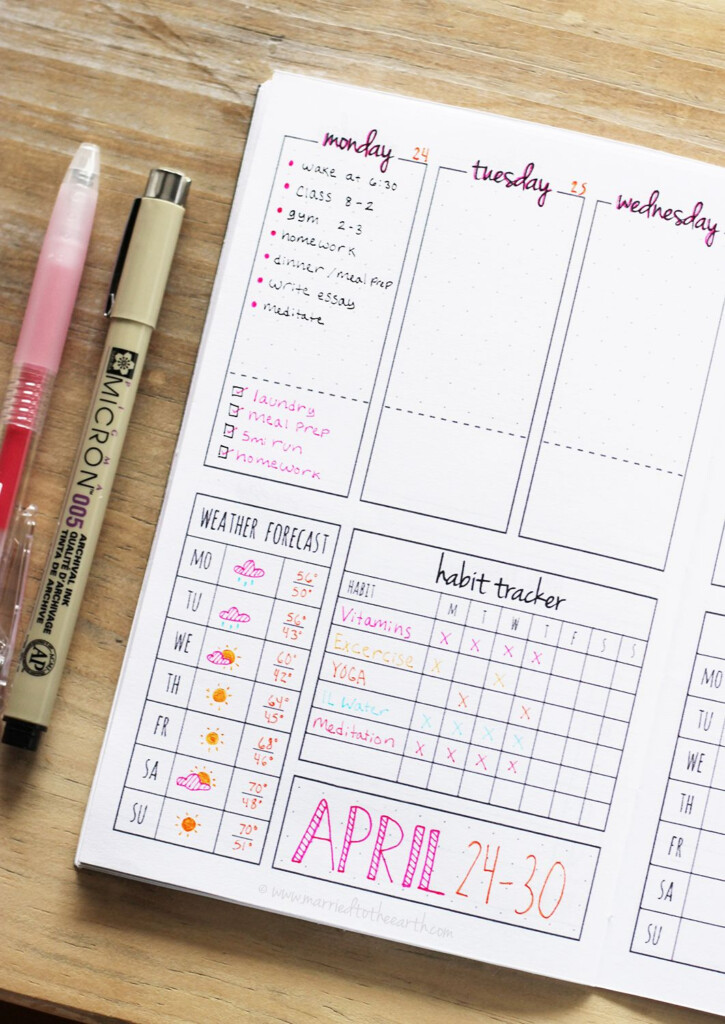 monday 24
wake at 6:30
Class 8-2
gym 2-3
homework
dinner/meal prep
write essay
meditate
laundry
meal prep
5mi run
homework
tuesday 25
wednesday
PIGMA
MICRON 005
ARCHIVAL INK
QUALITÉ D'ARCHIVAGE
TINTA DE ARCHIVE
AP
WEATHER FORECAST
MO 56° 50°
TU 56° 43°
WE 60° 42°
TH 64° 45°
FR 68° 46°
SA 70° 48°
SU 70° 51°
habit tracker
HABIT M T W T F S S
Vitamins X X X X
Excercise X X
YOGA X X
1L Water X X X X
Meditation X X X X
APRIL 24-30
© www.marriedtotheearth.com
MO
TU
WE
TH
FR
SA
SU